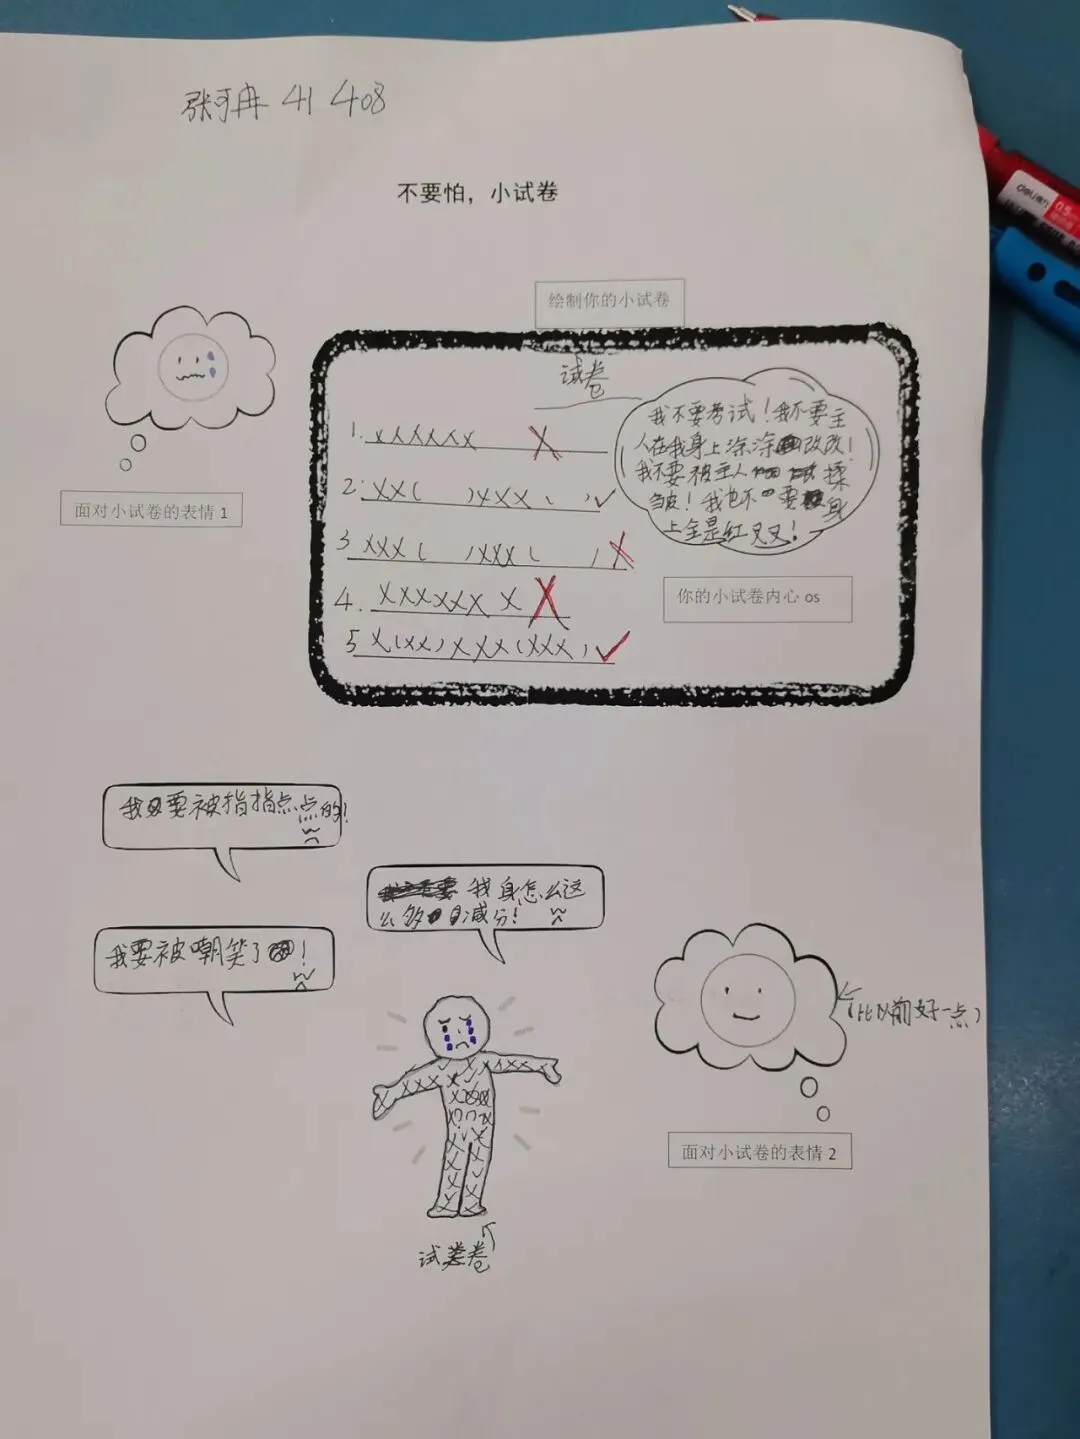 张可冉 41 408
不要怕，小试卷
绘制你的小试卷
试卷
1. XXXXXX X
2. XX( )XXX( )✓
3 XXX( )XXX( )X
4. XXXXXX X X
5 X(XX)XXX(XXX)✓
我不要考试！我不要主
人在我身上涂涂改改！
我不要被主人揉
皱！我也不要身
上全是红叉叉！
面对小试卷的表情 1
你的小试卷内心 os
我要被指指点点的！
我身怎么这
么多减分！
我要被嘲笑了！
（比以前好一点）
面对小试卷的表情 2
试卷
deli得力
0.5